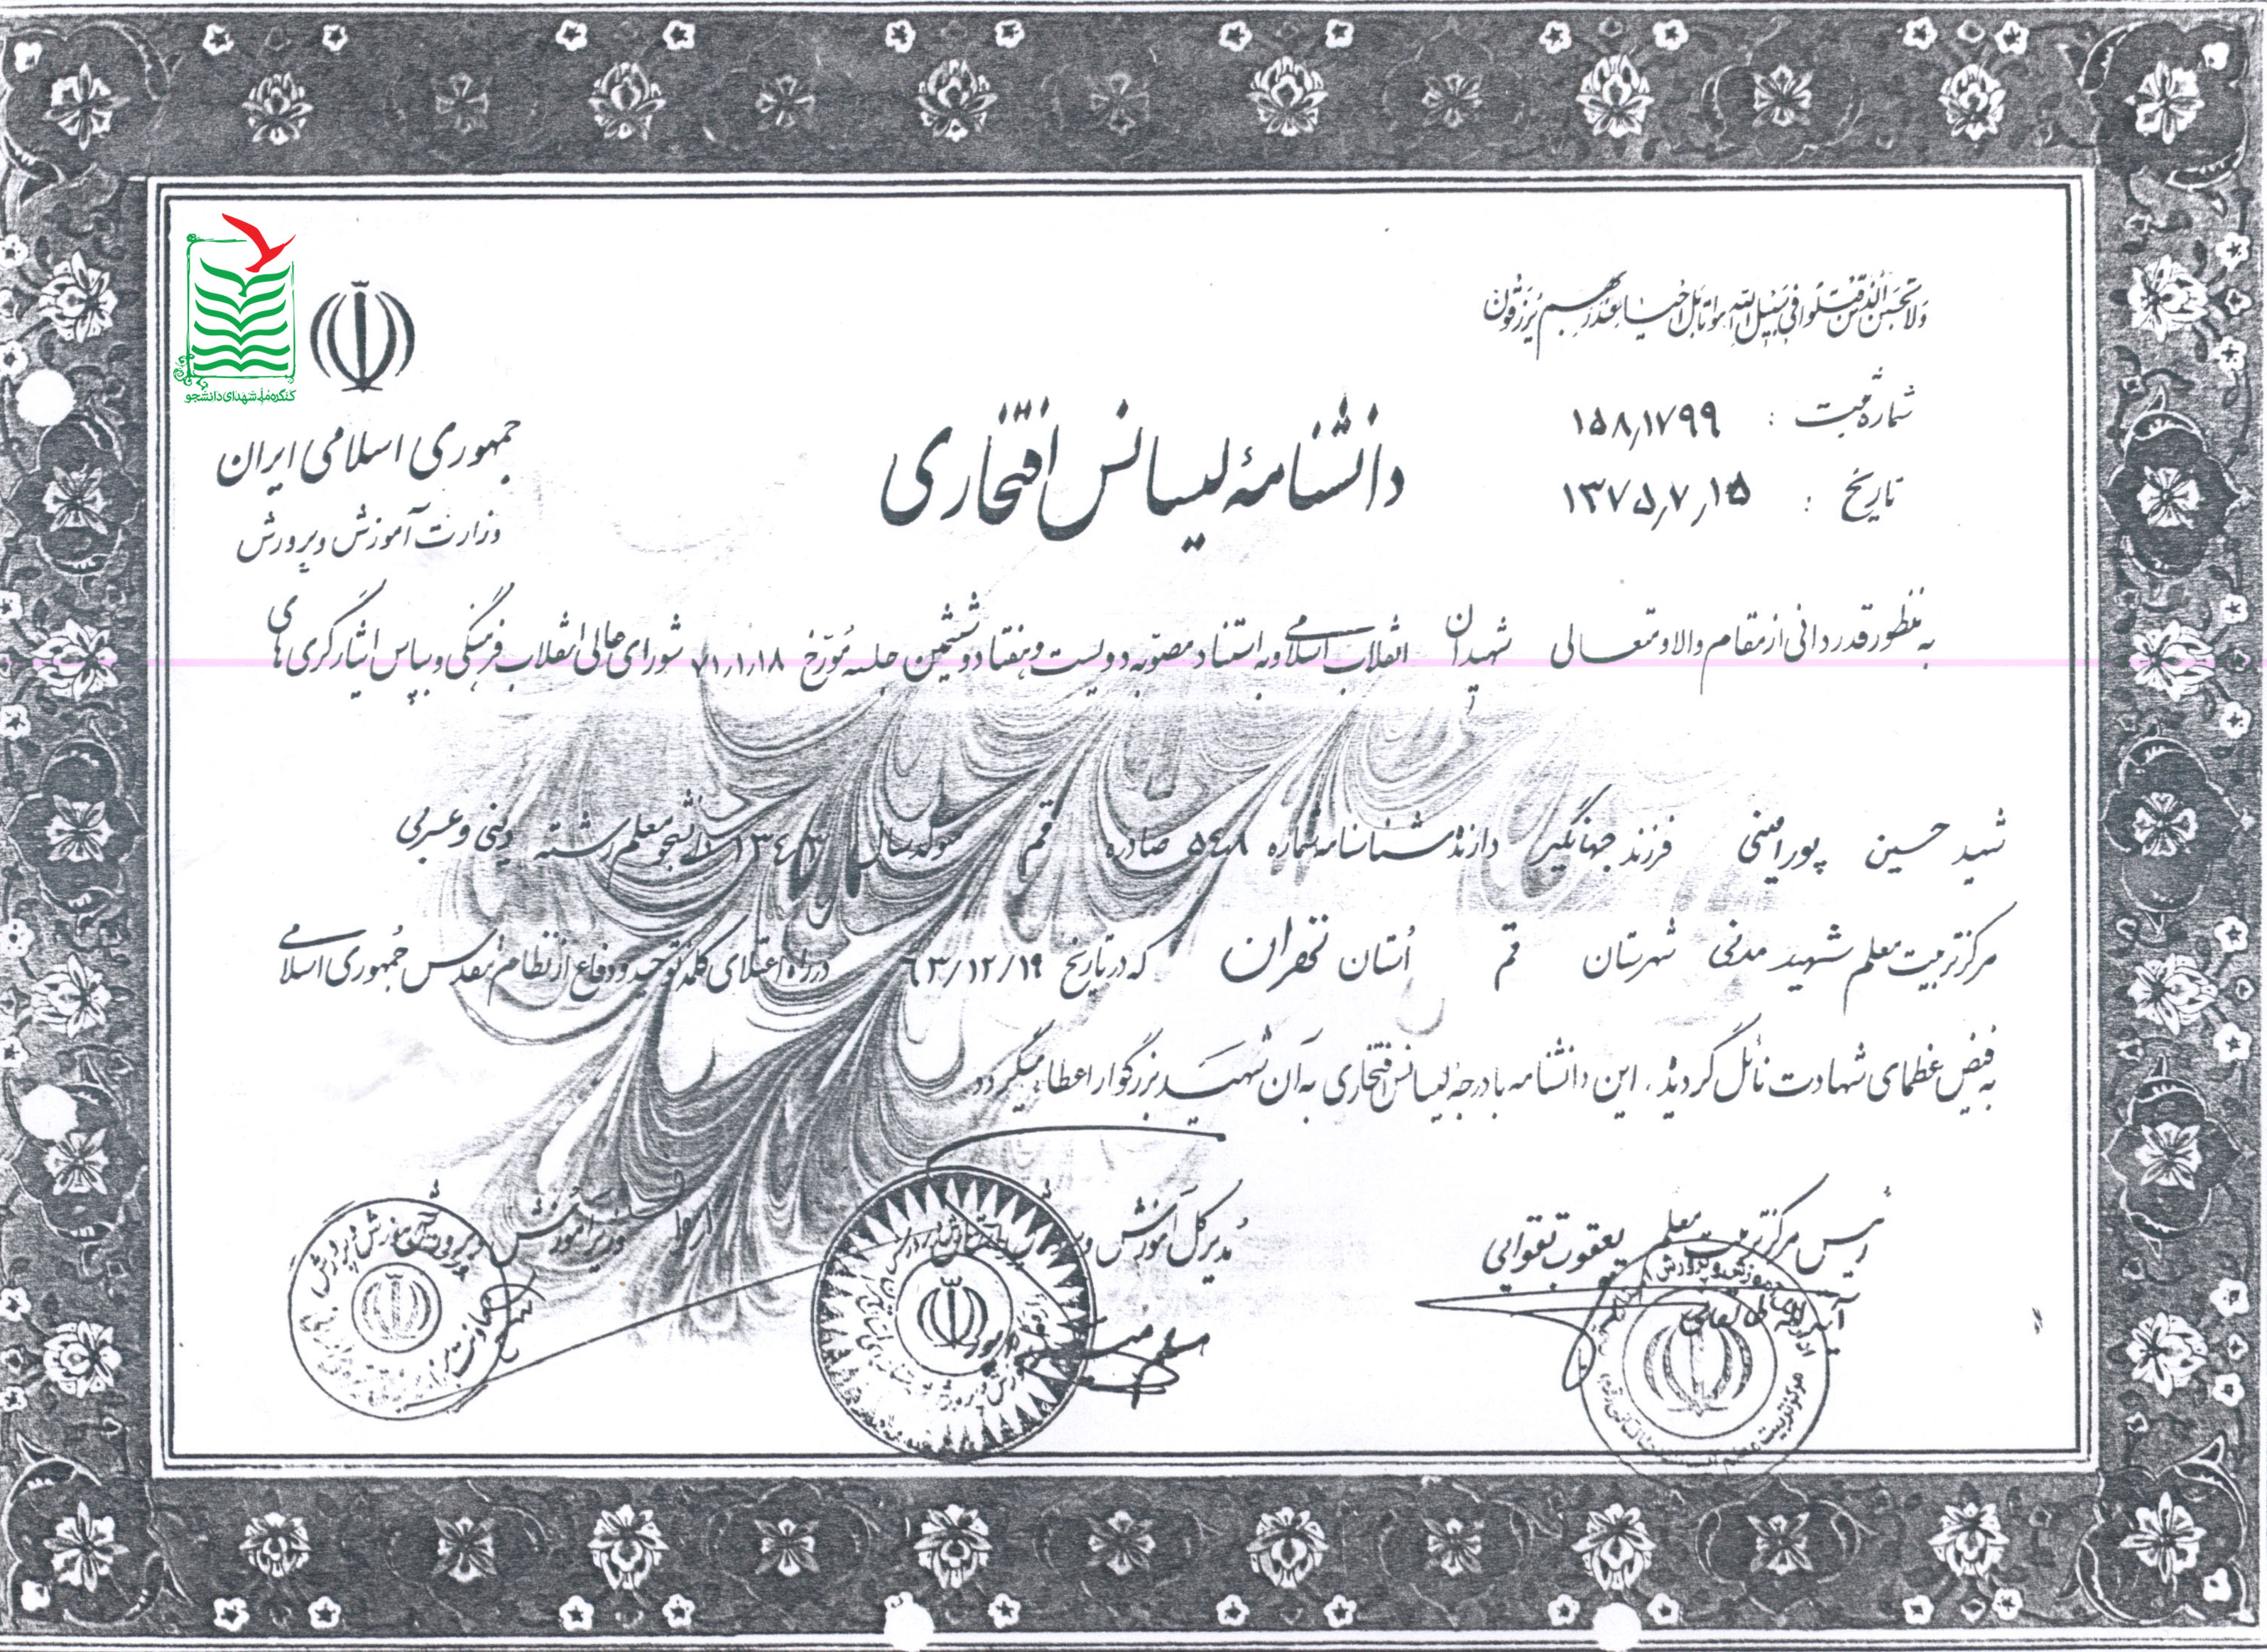 ولا تحسبن الذین قتلوا فی سبیل الله امواتا بل احیاء عند ربهم یرزقون
کنگره ملی شهدای دانشجو
جمهوری اسلامی ایران
وزارت آموزش و پرورش
شماره ثبت : ۱۵۸٫۱۷۹۹
تاریخ : ۱۳۷۵٫۷٫۱۵
دانشنامهٔ لیسانس افتخاری
به منظور قدردانی از مقام والا و متعالی شهیدان انقلاب اسلامی و به استناد مصوبه دویست و هفتاد و ششمین جلسه مورخ ۷۱٫۱٫۱۸ شورای عالی انقلاب فرهنگی و بپاس ایثارگری های
شهید حسین پورامینی فرزند جهانگیر دارنده شناسنامه شماره ۵۴۸ صادره قم متولد سال دانشجو معلم رشته دینی و عربی
مرکز تربیت معلم شهید مدنی شهرستان قم استان تهران که در تاریخ ۶۳/۱۲/۱۹ در راه اعتلای کلمه توحید و دفاع از نظام مقدس جمهوری اسلامی
به فیض عظمای شهادت نائل گردید، این دانشنامه با درجه لیسانس افتخاری به آن شهید بزرگوار اعطا میگردد
رئیس مرکز تربیت معلم یعقوب تقوایی
آیت الله طالقانی
مدیر کل آموزش و
وزیر آموزش